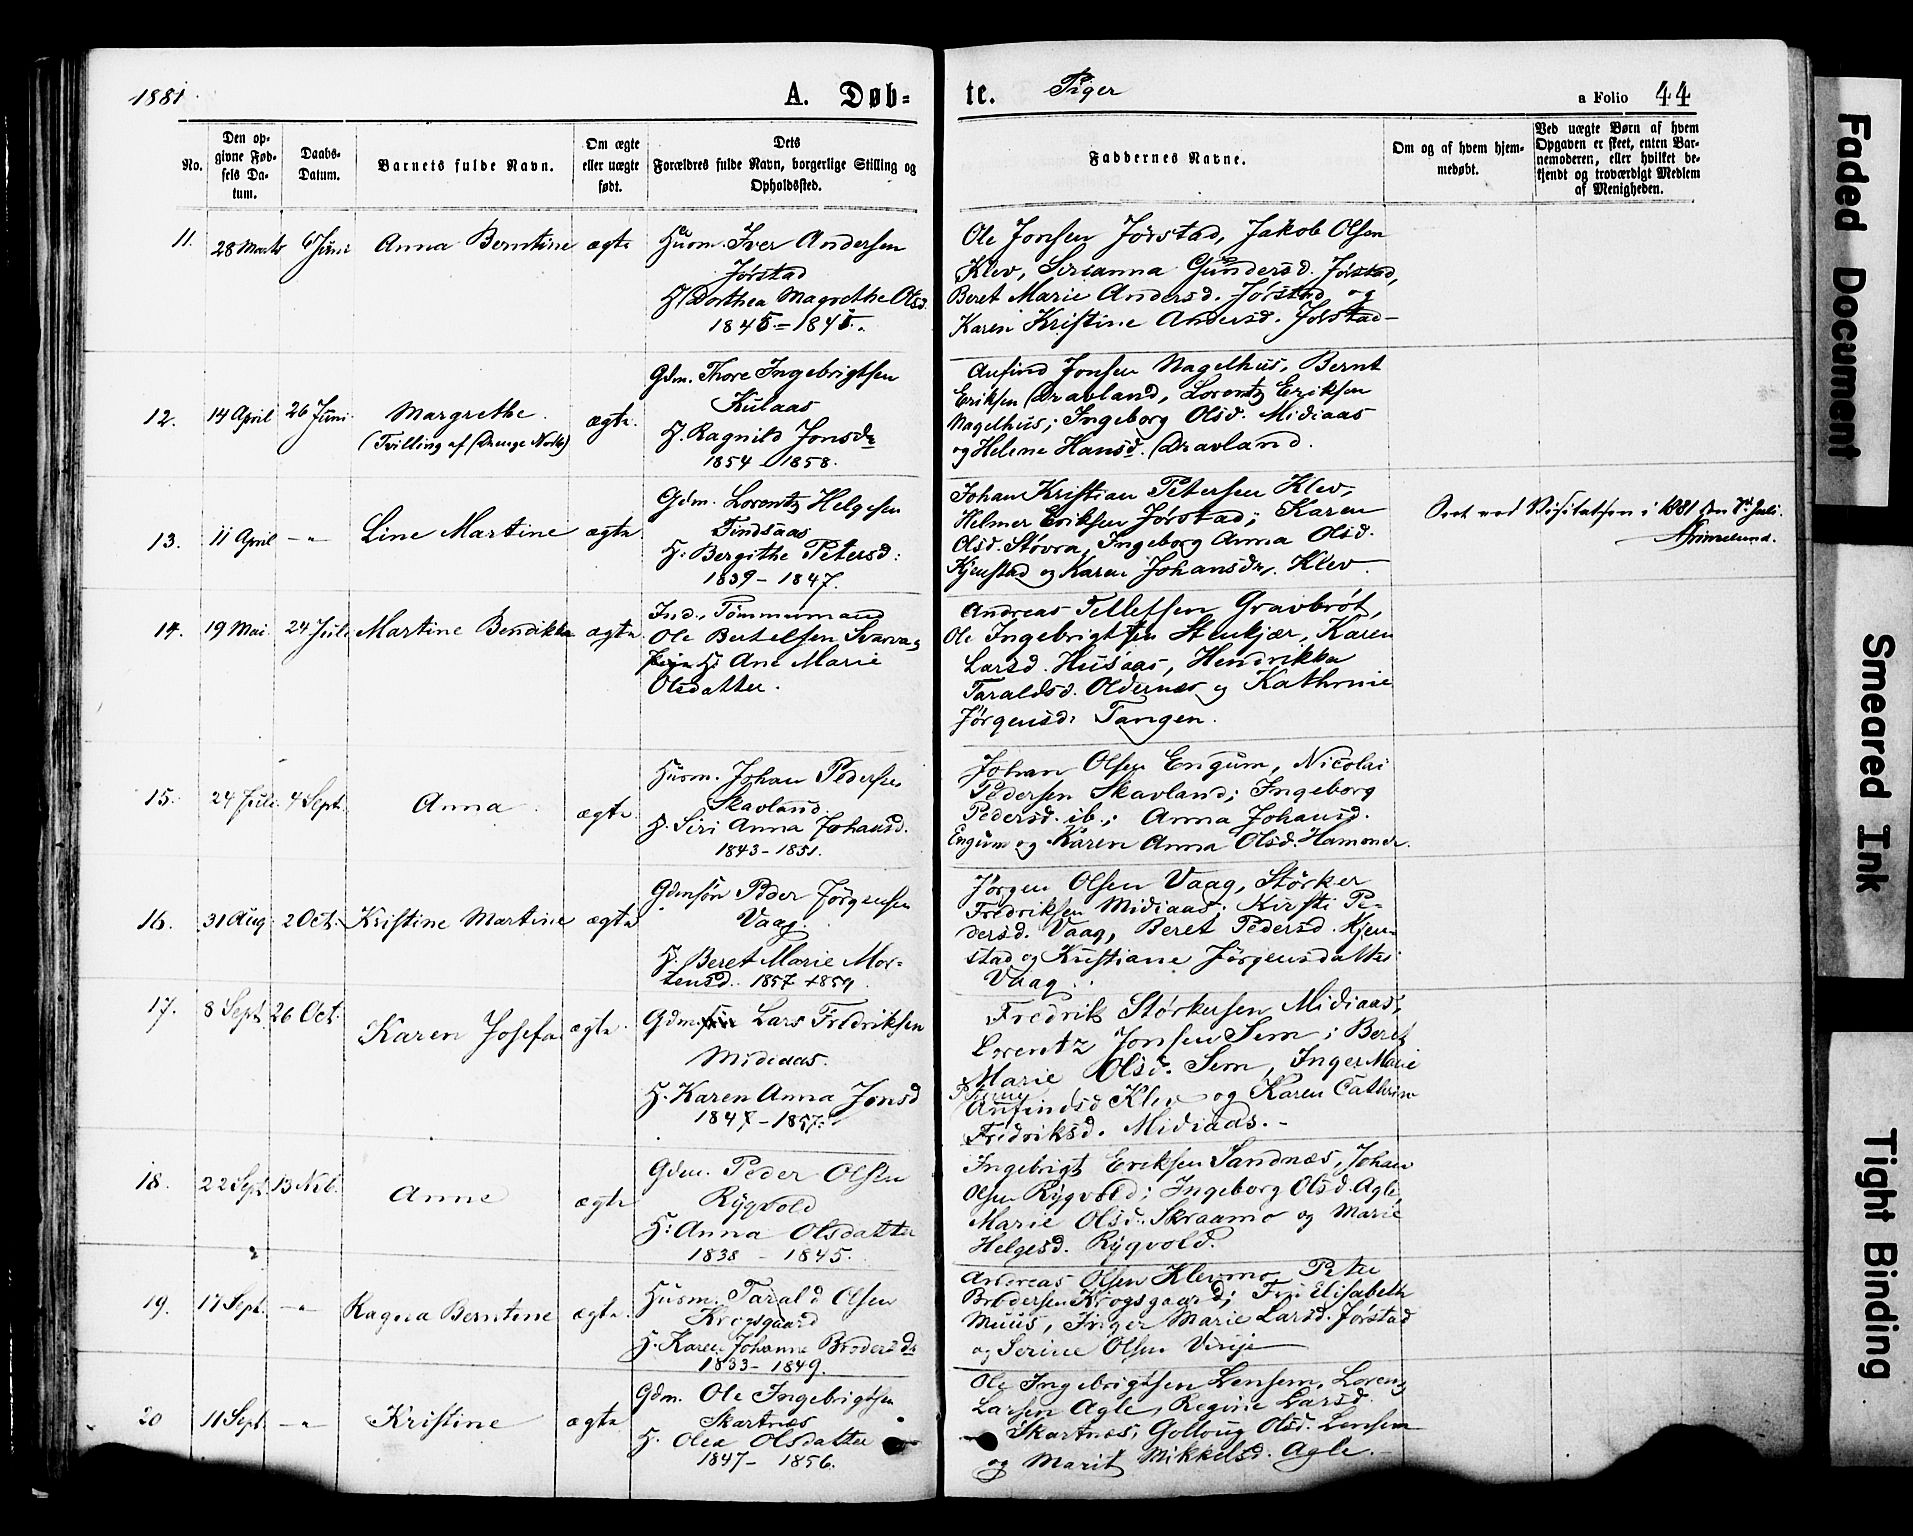 1881.
A. Døb=
te.
Piger
a Folio 44
No.
Den op-
givne Fød-
sels Da-
tum.
Daabs-
Datum.
Barnets fulde Navn.
Om ægte
eller uægte
født.
Dets
Forældres fulde Navn, borgerlige Stilling og
Opholdssted.
Faddernes Navne.
Om og af hvem hjem-
medøbt.
Ved uægte Børn af hvem
Opgaven er skeet, enten Bar-
nemoderen, eller hvilket be-
kjendt og troværdigt Medlem
af Menigheden.
11. 28 Marts 6 Juni Anna Berntine ægte
Husm. Iver Andersen
Jørstad
H. Dorthea Magrethe Olsd.
1845 = 1845.
Ole Jonsen Jørstad, Jakob Olsen
Klev, Serianna Gundersd. Jørstad,
Beret Marie Andersd. Jørstad og
Karen Kristine Andersd. Jørstad
12. 14 April 26 Juni Margrethe ægte.
(Tvilling af Drenge No 16)
Gdm. Thore Ingebrigtsen
Kulaas
H. Ragnild Jonsdr
1854 - 1858.
Anfind Jonsen Nagelhus, Bernt
Eriksen Dravland, Lorentz Eriksen
Nagelhus; Ingeborg Olsd. Midiaas
og Helene Hansd. Dravland.
13. 11 April - " Line Martine ægte
Gdm. Lorentz Helgesen
Findsaas
H: Bergithe Petersd:
1839 - 1847.
Johan Kristian Petersen Klev,
Helmer Eriksen Jørstad; Karen
Olsd. Støvra, Ingeborg Anna Olsd.
Kjenstad og Karen Johansdr. Klev
Seet ved Visitatsen i 1881 den 7d Juli.
Grimelund.
14. 19 Mai 24 Juli Martine Bendikka ægte
Ind., Tømmermand
Ole Bertelsen Svarva
H: Ane Marie
Olsdatter.
Andreas Tellefsen Gravbrøt,
Ole Ingebrigtsen Stenkjær, Karen
Larsd. Husaas, Hendrikka
Taraldsd. Oldernæs og Kathrine
Jørgensd: Tangen.
15. 24 Juli 4 Sept. Anna ægte
Husm. Johan Pedersen
Skavland.
H. Siri Anna Johansd.
1843 - 1851.
Johan Olsen Engum, Nicolai
Pedersen Skavland; Ingeborg
Pedersd. ib.; Anna Johansd.
Engum og Karen Anna Olsd. Hamoner.
16. 31 Aug 2 Oct. Kristine Martine ægte
Gdmsøn Peder Jørgensen
Vaag.
H. Beret Marie Mor-
tensd. 1857 1859
Jørgen Olsen Vaag, Størker
Fredriksen Midiaas; Kirsti Pe-
dersd. Vaag, Beret Pedersd. Kjen-
stad og Kristiane Jørgensdatter
Vaag.
17. 8 Sept. 26 Oct. Karen Josefa ægte.
Gdm. Lars Fredriksen
Midiaas.
H. Karen Anna Jonsd
1847 - 1857.
Fredrik Størkersen Midiaas,
Lorentz Jonsen Sem; Beret
Marie Olsd. Sem, Inger Marie
Anfindsd Klev og Karen Cathrine
Fredriksd. Midiaas. -
18. 22 Sept 13 Nob. Anne ægte
Gdm. Peder Olsen
Rygvold
H: Anna Olsdatter
1838 - 1845.
Ingebrigt Eriksen Sandnæs, Johan
Olsen Rygvold; Ingeborg Olsd. Agle,
Marie Olsd. Skraamo og Marie
Helgesd. Rygvold.
19. 17 Sept. - " Ragna Berntine ægte.
Husm. Tarald Olsen
Krogsgaard
H. Karen Johanne Brodersdr
1833 - 1849.
Andreas Olsen Klevmo, Peter
Brodersen Krogsgaard; Frk Elisabeth
Muus, Inger Marie Larsd. Jørstad
og Serine Olsen
20 11 Sept - " Kristine ægte
Gdm. Ole Ingebrigtsen
Skartnæs
H. Olea Olsdatter
1847 - 1856.
Ole Ingebrigtsen Lensem, Lorentz
Larsen Agle, Regine Larsd.
Skartnæs; Gollaug Olsd. Lensem
og Marit Mikkelsd. Agle.
Faded Document
Smeared Ink
Tight Binding